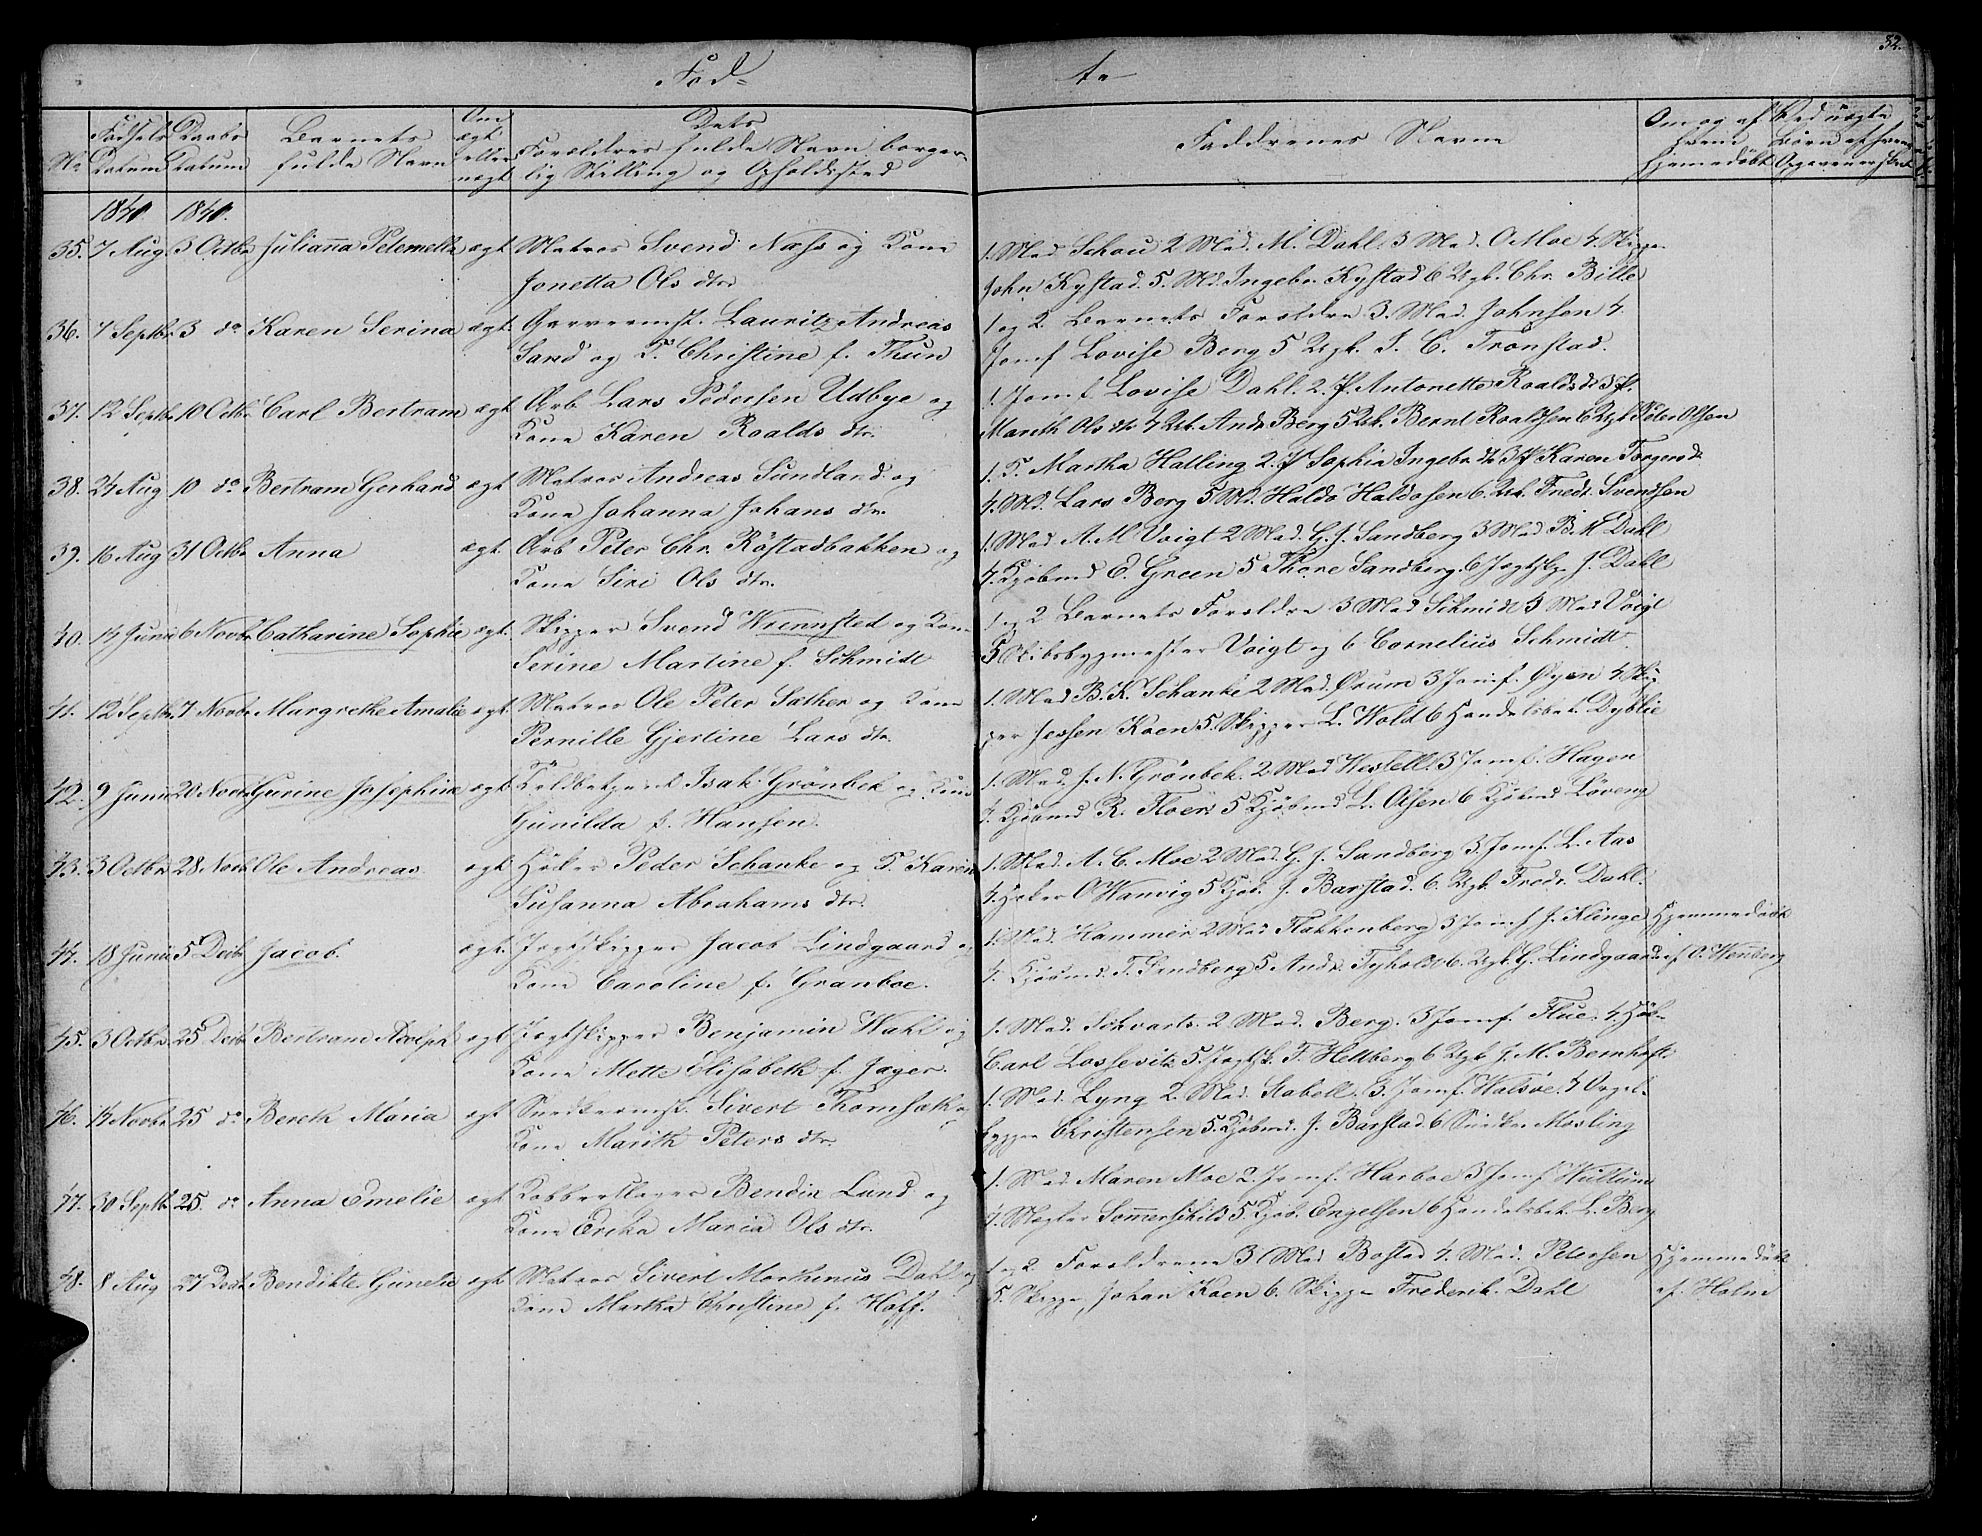 32.
Fød- te
No
Fødsels Datum
Daabs Datum
Barnets fulde Navn
Om ægt eller uægt
Dets Forældres fulde Navn borgerlig Stilling og Opholdssted
Faddrenes Navne
Om og af hvem hjemmedøbt
1840. 1840.
35. 7 Aug. 3 Octbr Julianna Peternella ægt. Matros Svend Næss og Kone
Jonetta Ols dtr.
1. Mad Schou 2 Mad. M. Dahl. 3 Mad. O Moe 4. Skipper
John Kystad. 5. Md. Ingebr. Kystad 6 Ugk. Chr. Bille
36. 7 Septbr. 3 do Karen Serina ægt. Garvermst. Lauritz Andreas
Sand og K. Christine f. Thun
1 og 2. Barnets Forældre 3. Mad. Johnsen 4.
Jomf Lovise Berg 5 Ugk. I. C. Tronstad.
37. 12 Septb. 10 Octbr Carl Bertram ægt Arb Lars Pedersen Udbye og
Kone Karen Roalds dtr.
1 Jomf. Lovise Dahl. 2. P. Antonette Roaldsdt 3 P.
Marith Ols dtr 4 Arb. Andr Berg 5 Ugk. Bernt Roaldsen 6 Ugk Peter Olsen
38. 24 Aug 10 do Bertram Gerhard ægt Matros Andreas Sundland og
Kone Johanna Johans dtr.
1. K. Martha Halling 2. P Sophia Ingebr dt 3 P Karen Torgersd.
4. Md. Lars Berg 5 Md. Haldo Haldosen 6. Ugk. Fredr. Svendsen
39. 16 Aug 31 Octbr Anna ægt. Arb Peter Chr. Röstadbakken og
Kone Siri Ols dtr.
1. Mad A. M Voigt 2 Mad. G. J. Sandberg 3 Mad B. M Dahl
4. Kjøbmd E. Green 5 Thore Sandberg. 6 J. Dahl
40. 14 Junii 6 Novbr Catharine Sophie ægt. Skipper Svend Wiennsted og Kone
Serine Martine f. Schmidt
1 og 2 Barnets Forældre 3 Mad Schmidt 4 Mad Voigt
5 Skibsbygmester Voigt og 6 Cornelius Schmidt.
41. 12 Septbr. 7 Novbr Margrethe Amalie ægt. Matros Ole Peter Sæther og Kone
Pernille Gjertine Lars dtr.
1. Mad B. K. Schanke 2 Mad. Ørum 3 Jomf. Øyen 4 Skip-
per Jessen Koen 5. Skipper L. Wold 6 Handelsbet. Dyblie
42. 9 Junii 20 Novbr Gurine Josephine ægt Toldbetjent Isak Grönbek og Kone
Gunilda f. Hansen.
1. Mad. J. N. Grönbek. 2 Mad Westell. 3 Jomf. Hagen
4. Kjøbmd R. Floer 5 Kjöbmd L. Olsen 6 Kjöbmd Löveng
43. 3 Octbr. 28 Novb Ole Andreas. ægt Høker Peder Schanke og K. Karen
Susanna Abrahams dtr.
1. Mad. A. C. Moe 2 Mad. G. J. Sandberg 3. Jomf. L. Aas
4. Høker O Wanvig 5 Kjöb. J. Barstad. 6. Ugk. Fredr. Dahl.
44. 18 Junii 5 Decbr Jacob. ægt. Jagtskipper Jacob Lindgaard og
Kone Caroline f. Granboe.
1. Mad. Hammer 2 Mad Flakkenberg 3 Jomf J. Klinge Hjemmedøbt
4. Kjøbmd. T. Sandberg 5 Andr. Tyholdt 6. Ugk. G. Lindgaard af O. Wenberg
45. 3 Octbr. 25 Decbr Bertram Adolph ægt Jagtskipper Benjamin Wahl og
Kone Mette Elisabeth f. Jæger.
1. Mad. Schvarts. 2 Mad. Berg. 3 Jomf. Flue. 4 Høk-
Carl Lossevitz 5. Jagtsk. T. Hellberg 6 Ugk J. M. Bernhoft
46. 14 Novbr. 25 do Bereth Maria ægt Snedkermst. Sivert Thomsæth og
Kone Marith Peters dtr.
1. Mad. Lyng 2 Mad. Stabell. 3. Jomf. Halsöe. 4 Orgel-
bygger Christensen 5. Kjöbmd. J. Barstad 6 Snedker Mosling
47. 30 Septbr. 25 do Anna Emelie ægt Kobberslager Bendix Lund og
Kone Erika Maria Ols dtr.
1. Mad Maren Moe 2. Jomf. Harboe 3 Jomf Hullum
4. Mægler Sommerschild 5. Kjöb. Engelsen 6 Handelsbet. L. Berg
48. 8 Aug 27 Decbr Bendikte Gunelie ægt Matros Sivert Marthinus Dahl og
Kone Martha Christine f. Hoff.
1 og 2. Forældrene 3 Mad Bostad 4. Mad. Petersen Hjemmedøbt
5. Skipper Johan Koen 6. Skipper Frederik. Dahl af Holm